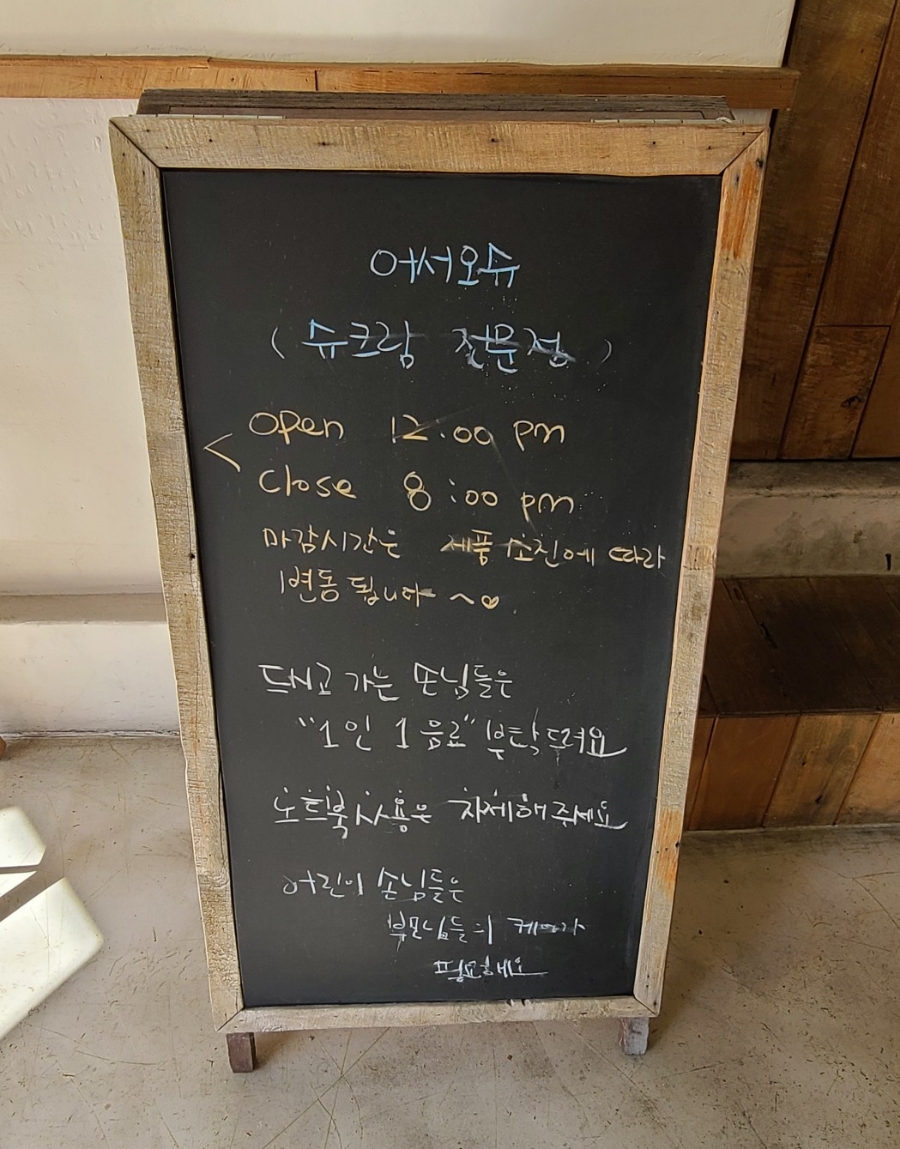 어서오슈
( 슈크랑 전문점 )
< open 12:00 pm
close 8:00 pm
마감시간은 제품 소진에 따라
변동 됩니다 ~♥
드시고 가는 손님들은
"1인 1음료" 부탁드려요
노트북 사용은 자제해주세요
어린이 손님들은
부모님들의 케어가
필요해요